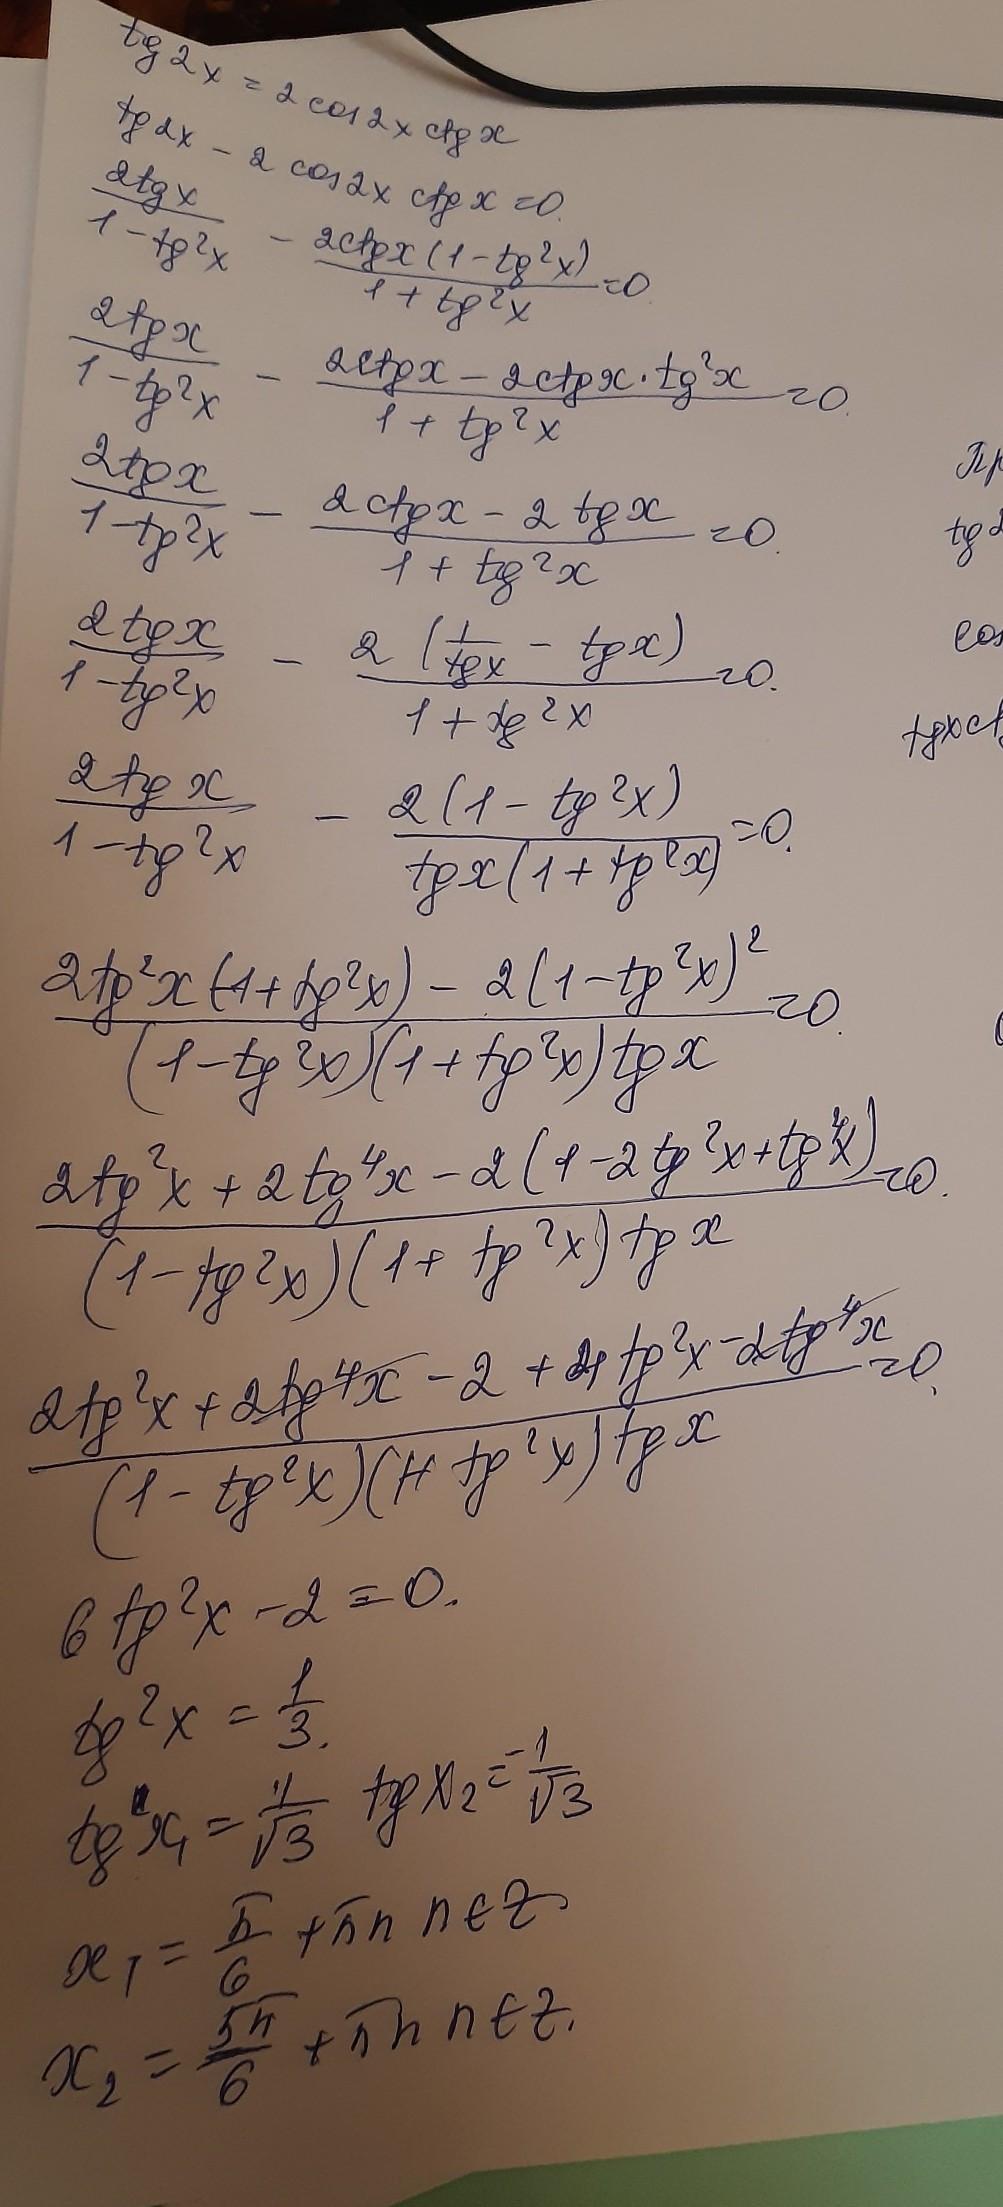 tg2x = 2cos2x ctgx
tg2x - 2cos2x ctgx = 0.
2tgx / 1 - tg²x - 2ctgx(1 - tg²x) / 1 + tg²x = 0.
2tgx / 1 - tg²x - 2ctgx - 2ctgx·tg²x / 1 + tg²x = 0.
2tgx / 1 - tg²x - 2ctgx - 2tgx / 1 + tg²x = 0.
2tgx / 1 - tg²x - 2(1/tgx - tgx) / 1 + tg²x = 0.
2tgx / 1 - tg²x - 2(1 - tg²x) / tgx(1 + tg²x) = 0.
2tg²x(1 + tg²x) - 2(1 - tg²x)² / (1 - tg²x)(1 + tg²x)tgx = 0.
2tg²x + 2tg⁴x - 2(1 - 2tg²x + tg⁴x) / (1 - tg²x)(1 + tg²x)tgx = 0.
2tg²x + 2tg⁴x - 2 + 4tg²x - 2tg⁴x / (1 - tg²x)(1 + tg²x)tgx = 0.
6tg²x - 2 = 0.
tg²x = 1/3.
tgx₁ = 1/√3 tgx₂ = -1/√3
x₁ = π/6 + πn n∈Z
x₂ = 5π/6 + πn n∈Z.
Пр
tg2
cos
tgxct